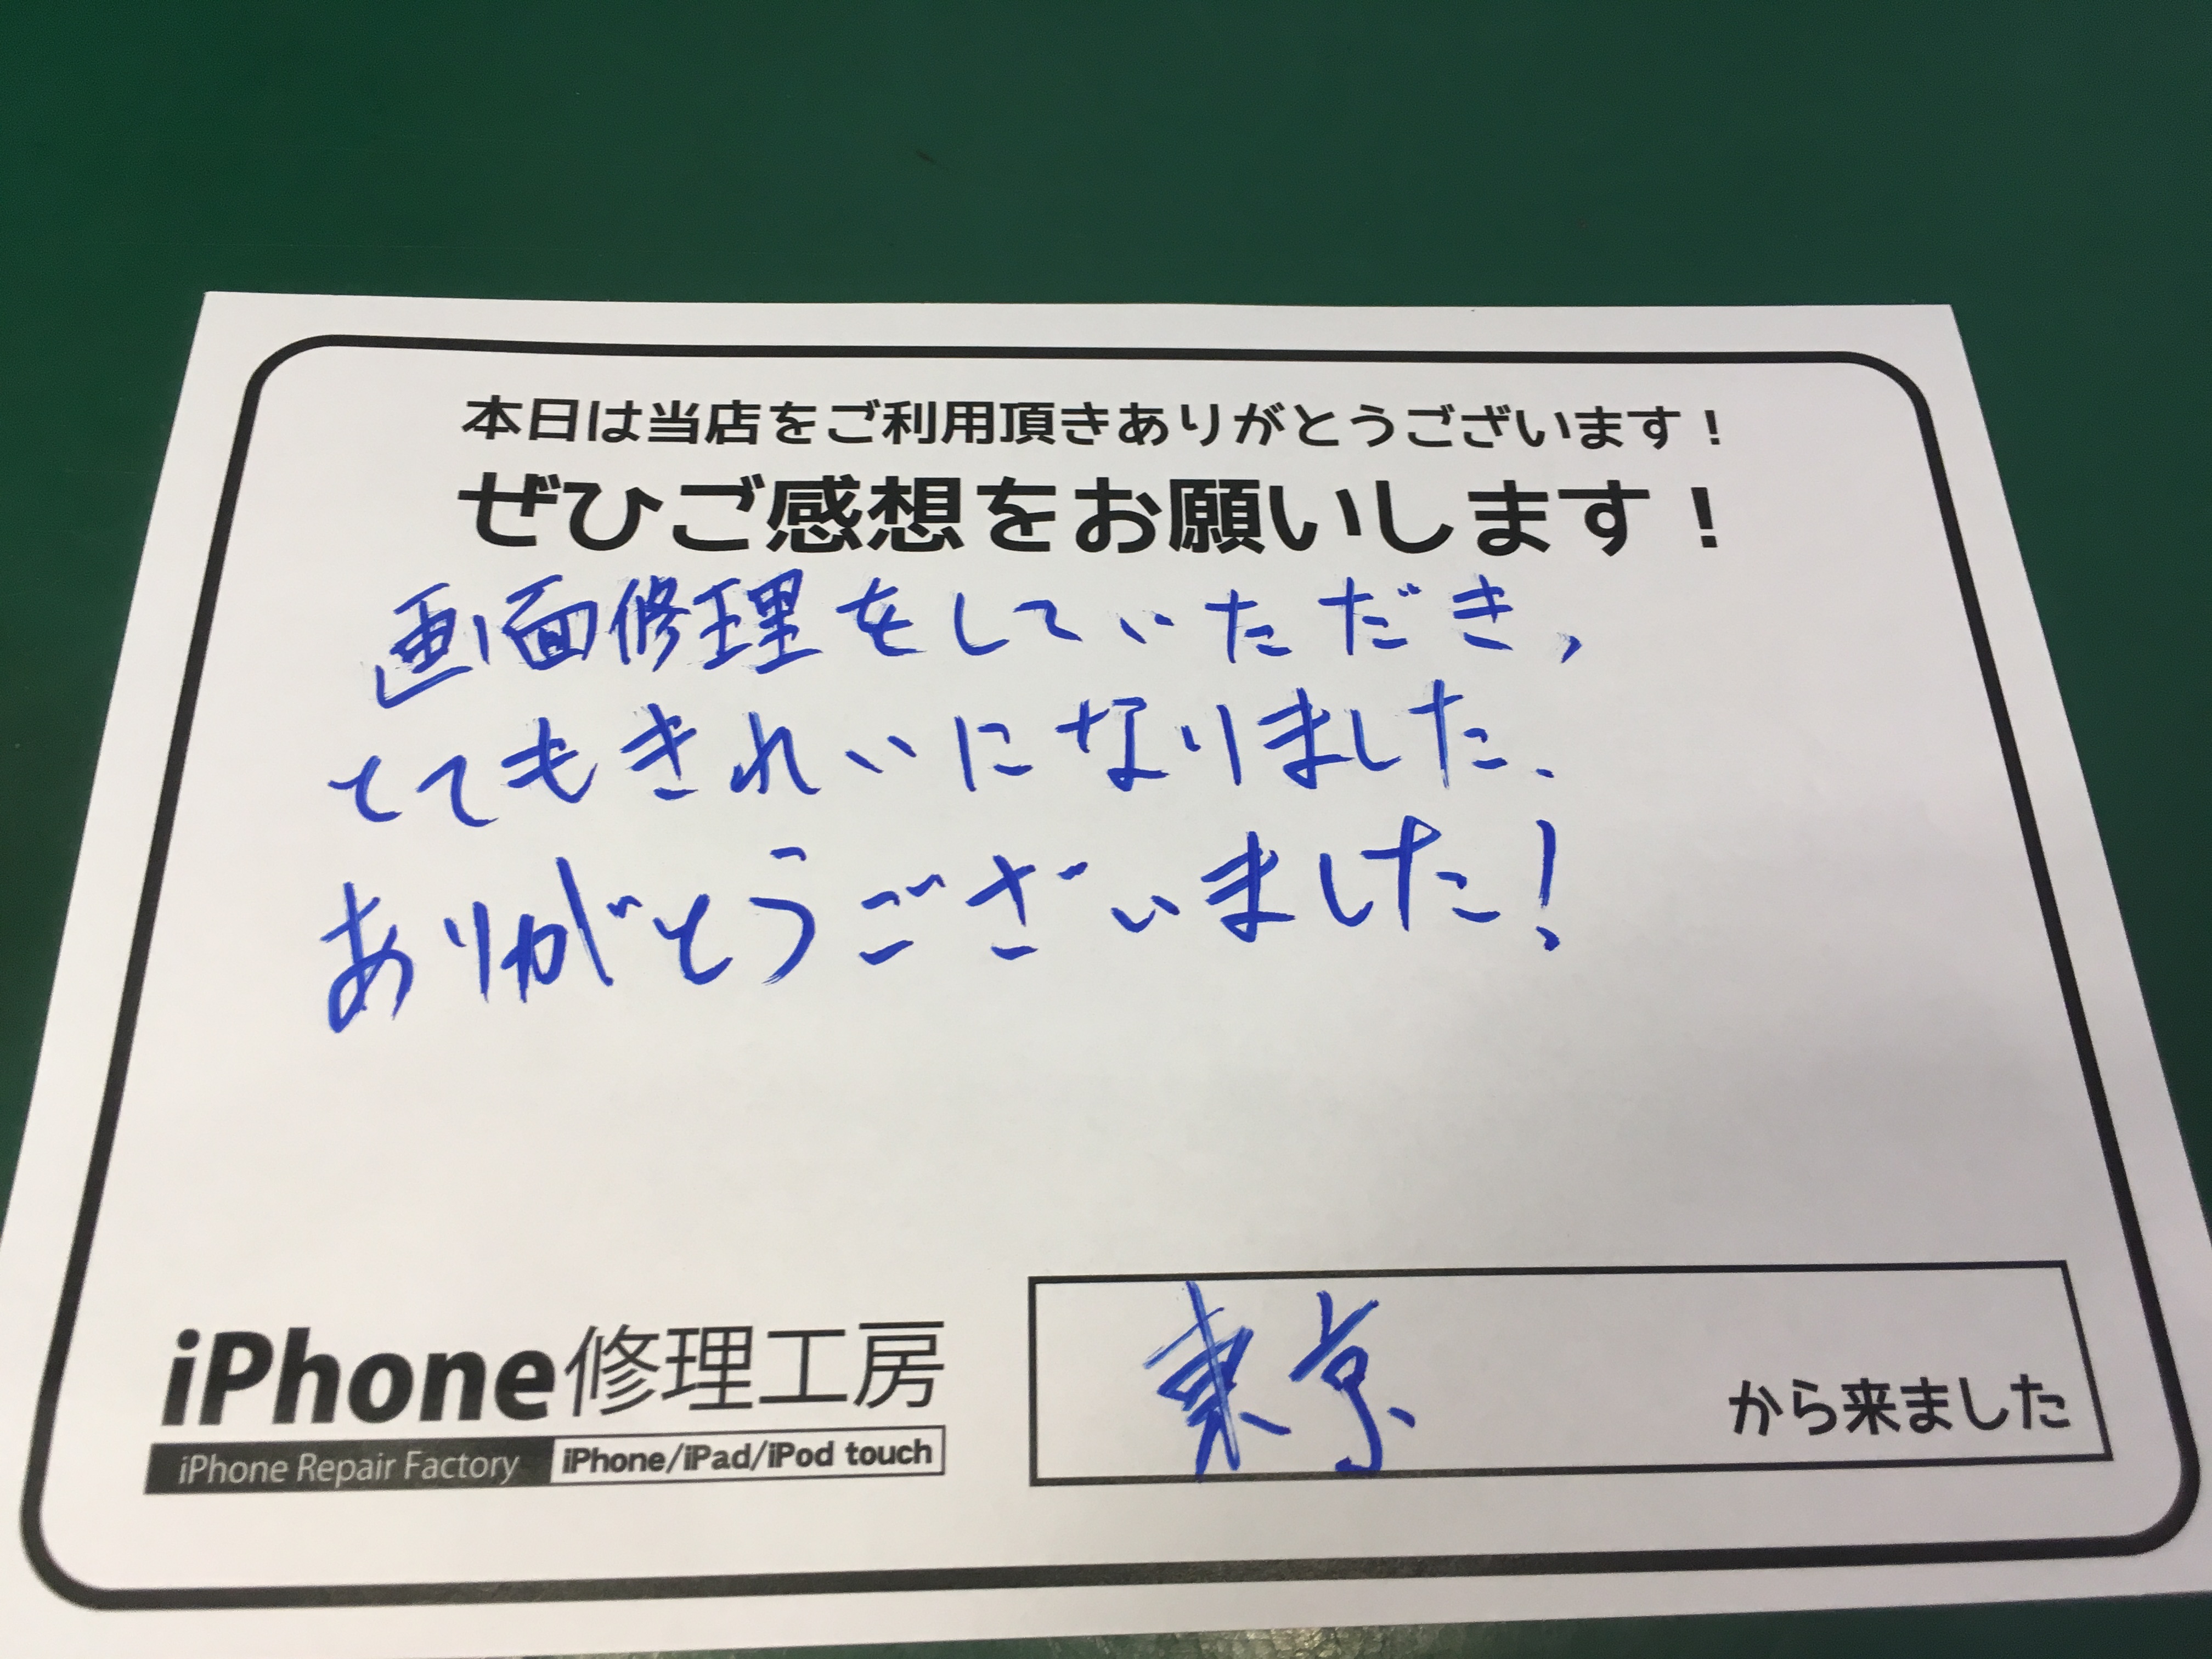 本日は当店をご利用頂きありがとうございます！
ぜひご感想をお願いします！
画面修理をしていただき，
とてもきれいになりました．
ありがとうございました！
東京
から来ました
iPhone修理工房
iPhone Repair Factory
iPhone/iPad/iPod touch